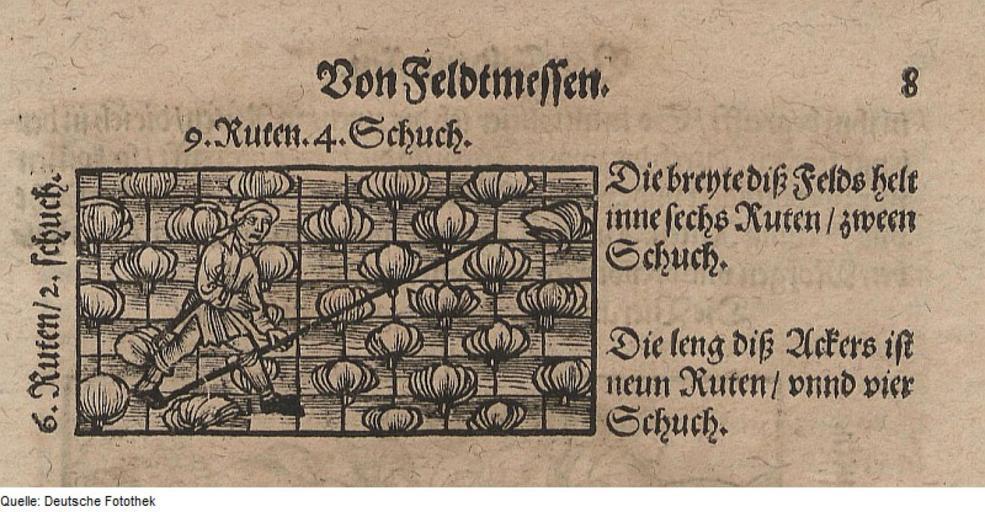 Von Feldtmessen. 8
9. Ruten. 4. Schuch.
6. Ruten/2. schuch.
Die breyte diß Felds helt
inne sechs Ruten / zween
Schuch.
Die leng diß Ackers ist
neun Ruten / vnnd vier
Schuch.
Quelle: Deutsche Fotothek